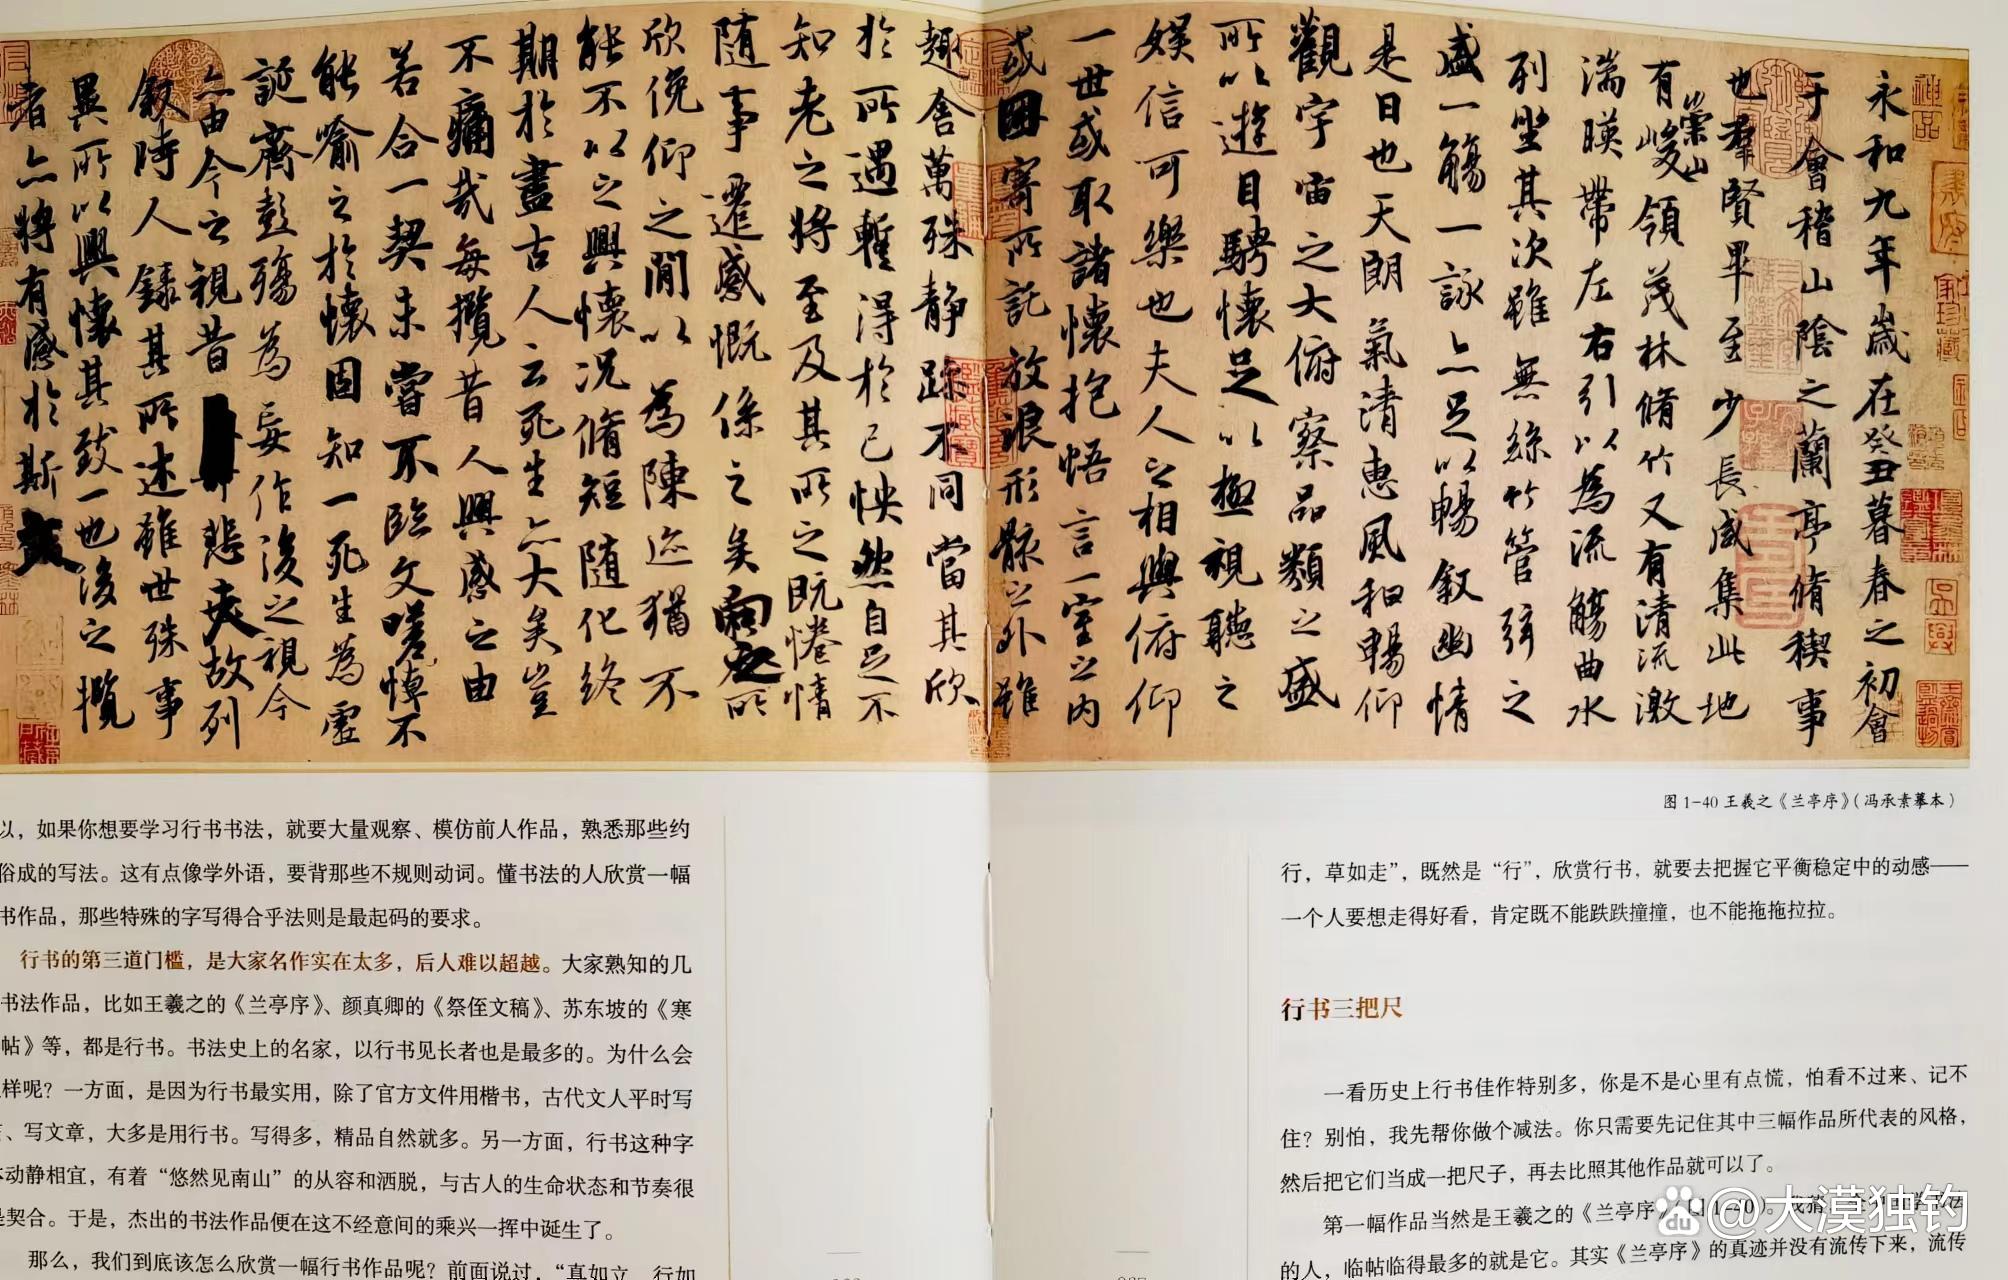 永和九年歲在癸丑暮春之初會
于會稽山陰之蘭亭脩稧事
也羣賢畢至少長咸集此地
有崇山峻領茂林脩竹又有清流激
湍暎帶左右引以為流觴曲水
列坐其次雖無絲竹管弦之
盛一觴一詠亦足以暢叙幽情
是日也天朗氣清惠風和暢仰
觀宇宙之大俯察品類之盛
所以遊目騁懷足以極視聽之
娛信可樂也夫人之相與俯仰
一世或取諸懷抱悟言一室之內
或因寄所託放浪形骸之外雖
趣舍萬殊静躁不同當其欣
於所遇蹔得於己怏然自足不
知老之將至及其所之既惓情
随事遷感慨係之矣向之所
欣俛仰之閒以為陳迹猶不
能不以之興懷況脩短随化終
期於盡古人云死生亦大矣豈
不痛哉每攬昔人興感之由
若合一契未嘗不臨文嗟悼不
能喻之於懷固知一死生為虛
誕齊彭殤為妄作後之視今
亦由今之視昔 悲夫故列
叙時人錄其所述雖世殊事
異所以興懷其致一也後之攬
者亦將有感於斯文
神品
图1-40 王羲之《兰亭序》(冯承素摹本)
以，如果你想要学习行书书法，就要大量观察、模仿前人作品，熟悉那些约
俗成的写法。这有点像学外语，要背那些不规则动词。懂书法的人欣赏一幅
书作品，那些特殊的字写得合乎法则是最起码的要求。
行书的第三道门槛，是大家名作实在太多，后人难以超越。大家熟知的几
书法作品，比如王羲之的《兰亭序》、颜真卿的《祭侄文稿》、苏东坡的《寒
帖》等，都是行书。书法史上的名家，以行书见长者也是最多的。为什么会
样呢？一方面，是因为行书最实用，除了官方文件用楷书，古代文人平时写
、写文章，大多是用行书。写得多，精品自然就多。另一方面，行书这种字
体动静相宜，有着“悠然见南山”的从容和洒脱，与古人的生命状态和节奏很
是契合。于是，杰出的书法作品便在这不经意间的乘兴一挥中诞生了。
那么，我们到底该怎么欣赏一幅行书作品呢？前面说过，“真如立，行如
行，草如走”，既然是“行”，欣赏行书，就要去把握它平衡稳定中的动感——
一个人要想走得好看，肯定既不能跌跌撞撞，也不能拖拖拉拉。
行书三把尺
一看历史上行书佳作特别多，你是不是心里有点慌，怕看不过来、记不
住？别怕，我先帮你做个减法。你只需要先记住其中三幅作品所代表的风格，
然后把它们当成一把尺子，再去比照其他作品就可以了。
第一幅作品当然是王羲之的《兰亭序》
的人，临帖临得最多的就是它。其实《兰亭序》的真迹并没有流传下来，流传
du @大漠独钓